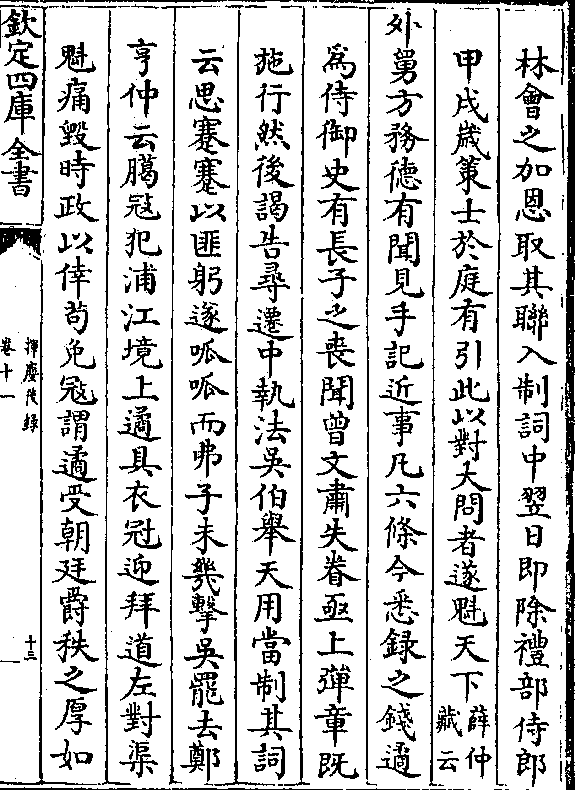 林會之加恩取其聯入制詞中翌日即除禮部侍郎
甲戌歲策士於庭有引此以對大問者遂魁天下薛仲
藏云
外舅方務德有聞見手記近事凡六條今悉録之錢遹
爲侍御史有長子之喪聞曾文肅失眷亟上彈章既
施行然後謁告尋遷中執法吳伯舉天用當制其詞
云思蹇蹇以匪躬遂呱呱而弗子未幾擊吳罷去鄭
亨仲云臈冦犯浦江境上遹具衣冠迎拜道左對渠
魁痛毀時政以倖苟免冦謂遹受朝廷爵秩之厚如
欽定四庫全書
揮麈後録
卷十一
十三